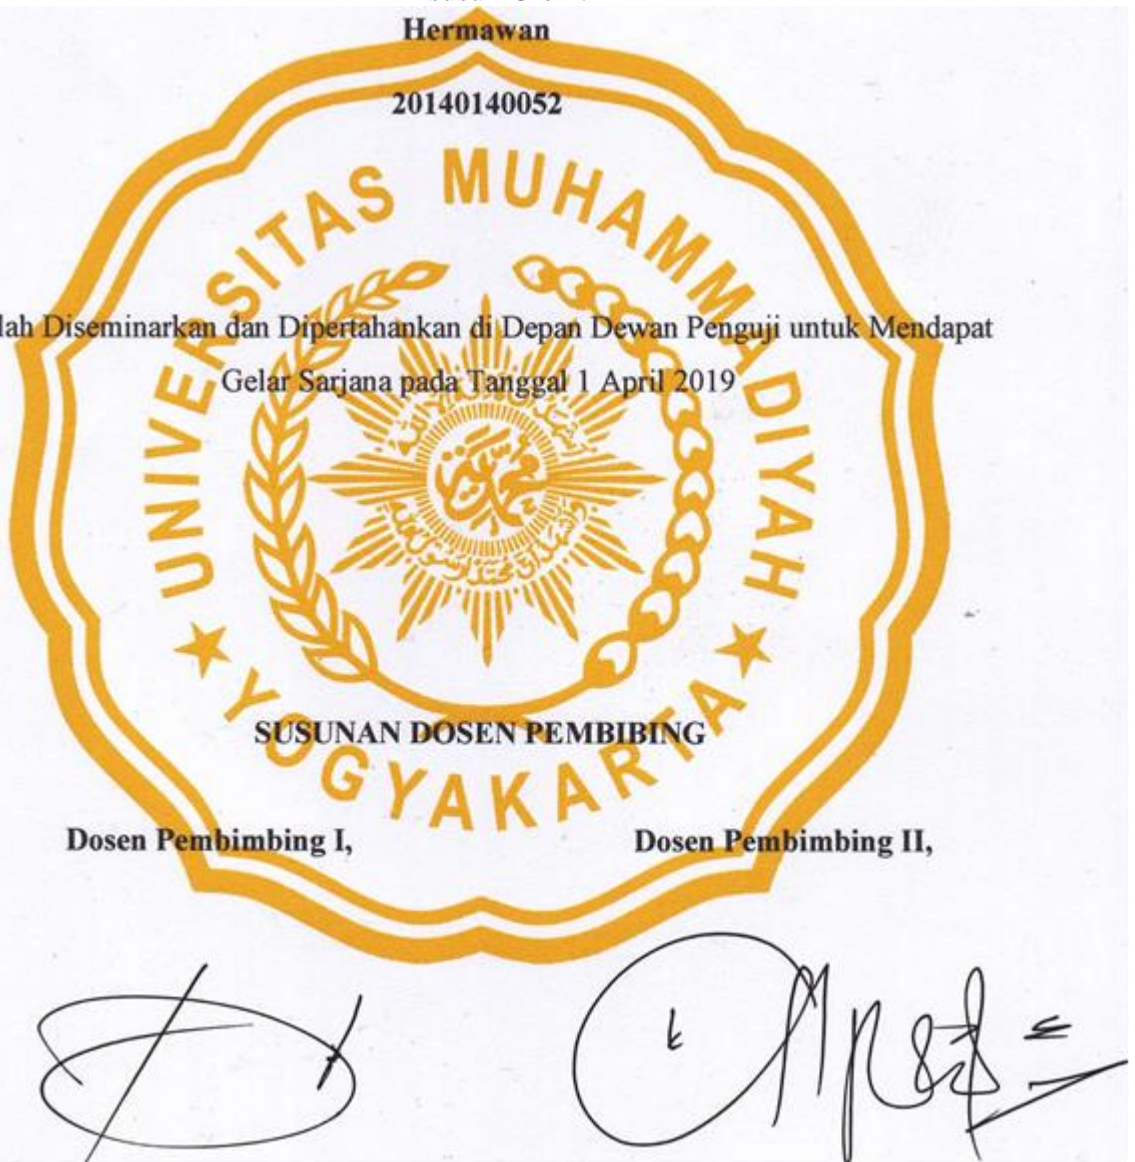 Hermawan
20140140052
UNIVERSITAS MUHAMMADIYAH
lah Diseminarkan dan Dipertahankan di Depan Dewan Penguji untuk Mendapat
Gelar Sarjana pada Tanggal 1 April 2019
YOGYAKARTA
SUSUNAN DOSEN PEMBIBING
Dosen Pembimbing I,
Dosen Pembimbing II,